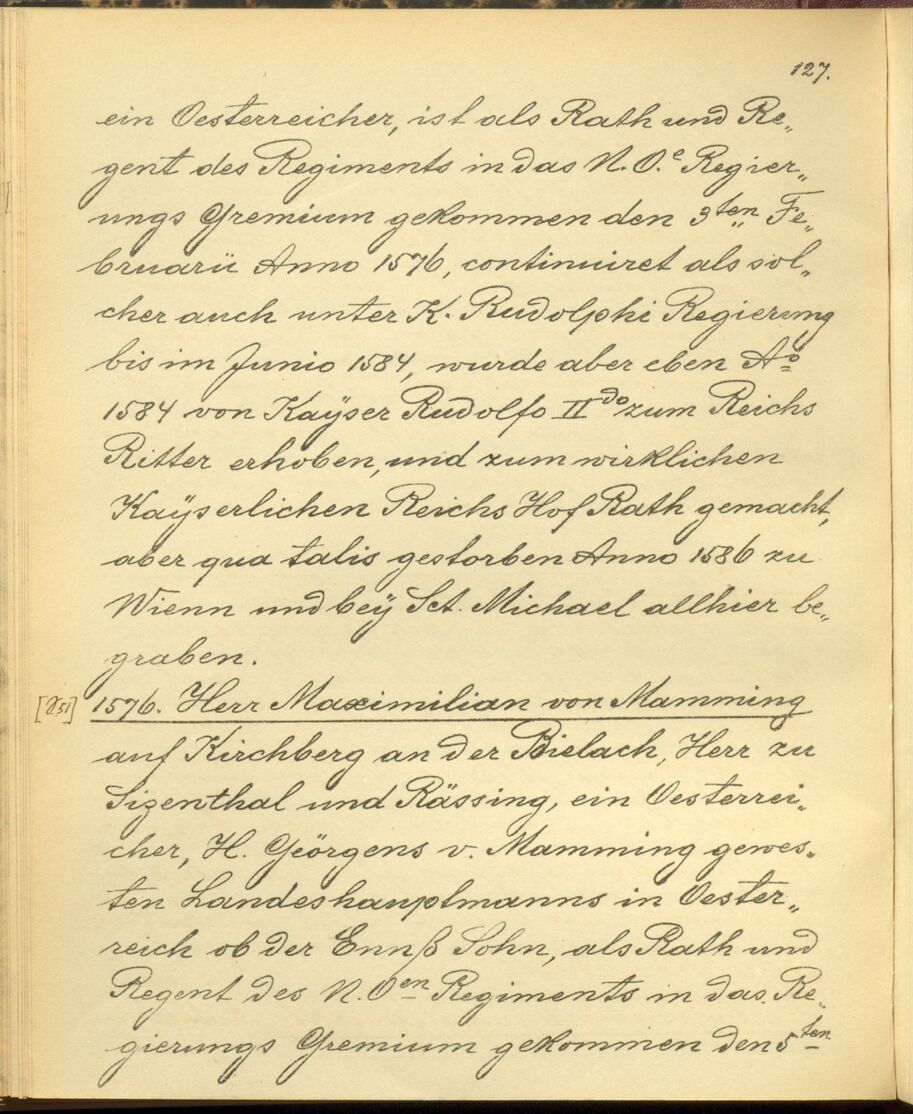 127.
ein Oesterreicher, ist als Rath und Re„
gent des Regiments in das N. O.e Regier„
ungs Gremium gekommen den 3ten Fe„
bruarii Anno 1576, continuiret als sol„
cher auch unter K. Rudolphi Regierung
bis im Junio 1584, wurde aber eben Ao
1584 von Kaÿser Rudolfo IIdo zum Reichs
Ritter erhoben, und zum wirklichen
Kaÿserlichen Reichs Hof Rath gemacht,
aber qua talis gestorben Anno 1586 zu
Wienn und beÿ Sct. Michael allhier be„
graben.
1576. Herr Maximilian von Mamming
auf Kirchberg an der Bielach, Herr zu
Sizenthal und Rässing, ein Oesterrei„
cher, H. Geörgens v. Mamming gewes„
ten Landeshauptmanns in Oester„
reich ob der Ennß Sohn, als Rath und
Regent des N. Oen Regiments in das Re„
gierungs Gremium gekommen den 5ten